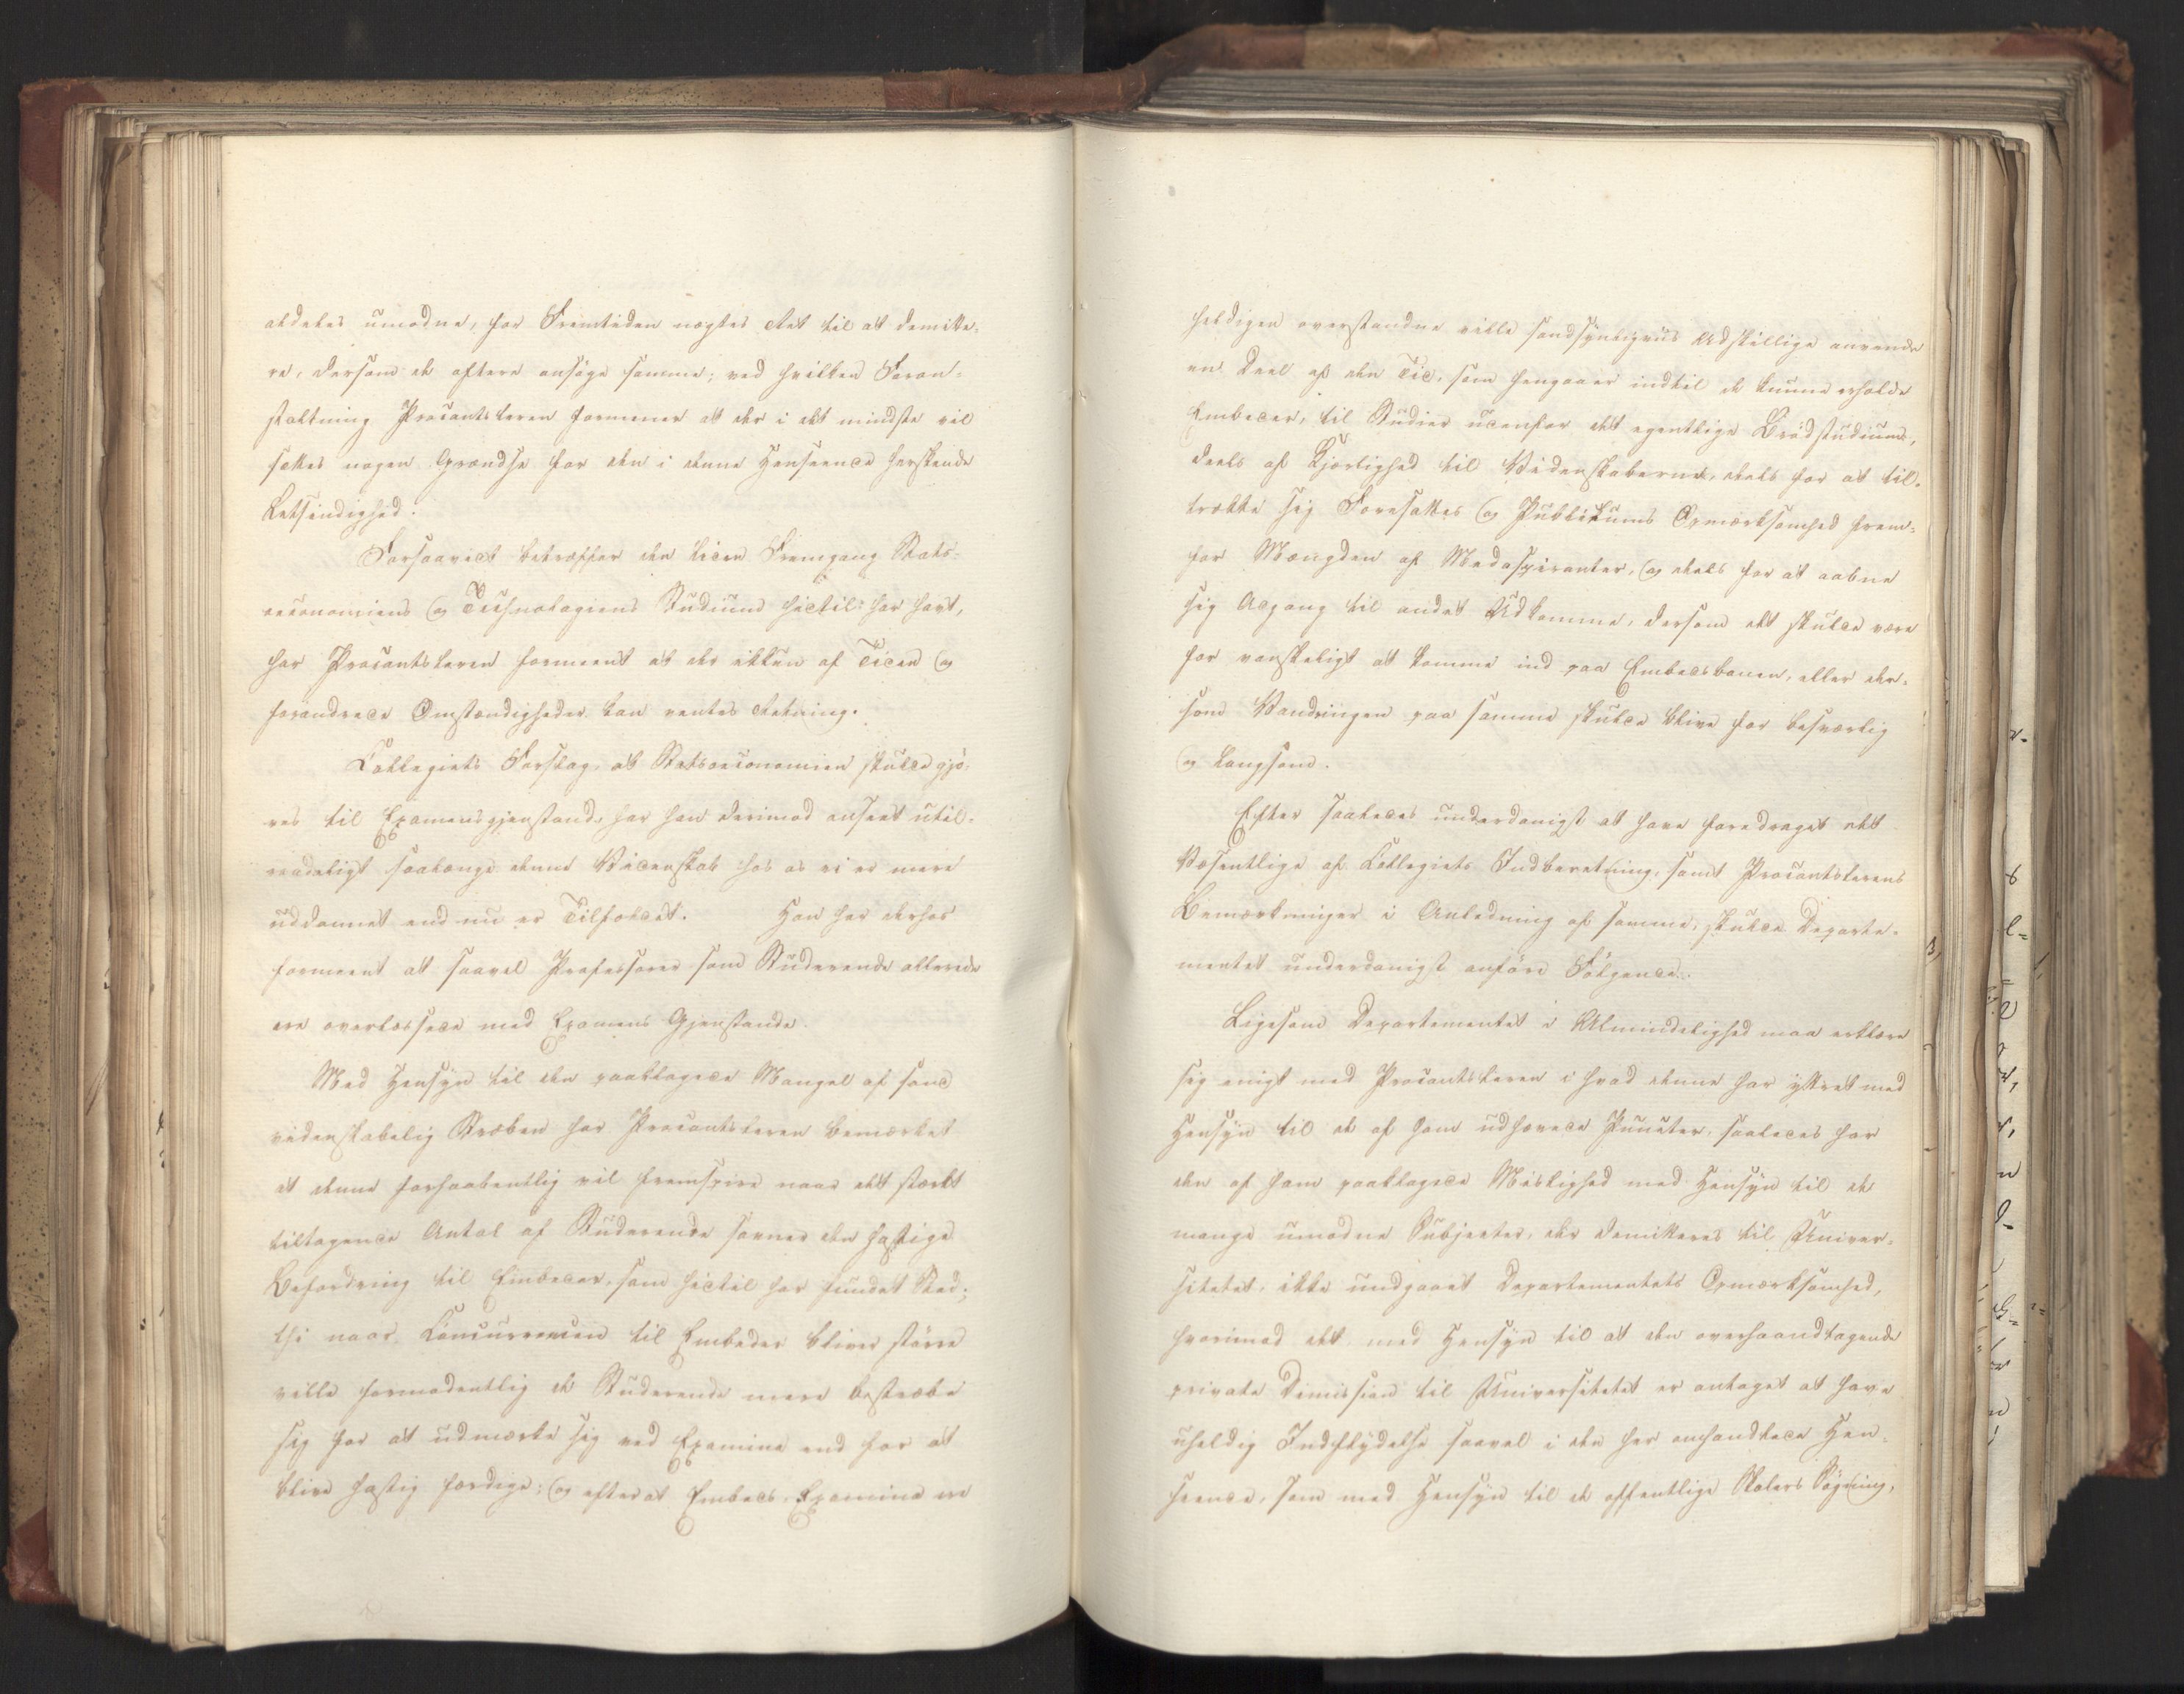 aldeles umodne, for Fremtiden nægtes Ret til at demitte-
re, dersom de oftere ansøge samme; ved hvilken Foran-
staltning Procantsleren formener at der i det mindste vil
sættes nogen Grændse for den i denne Henseende herskende
Letsindighed.
Forsaavidt betræffer den liden Fremgang Stats-
oeconomiens og Technologiens Studium hidtil har havt,
har Procantsleren formeent at der ikkun af Tiden og
forandrede Omstændigheder kan ventes Retning.
Collegiets Forslag, at Statsoeconomien skulde gjö-
res til Examensgjenstand, har han derimod anseet util-
raadeligt saalænge denne Videnskab hos os ei er mere
uddannet end nu er Tilfældet. Han har derhos
formeent at saavel Professorer som Studerende allerede
ere overlæssede med Examens Gjenstande.
Med Hensyn til den paaklagede Mangel af sand
videnskabelig Stræben har Procantsleren bemærket
at denne forhaabentlig vil fremspire naar det stærkt
tiltagende Antal af Studerende savner den hastige
Befordring til Embeder, som hidtil har fundet Sted;
thi naar Concurrencen til Embeder bliver større
ville formodentlig de Studerende mere bestræbe
sig for at udmærke sig ved Examina end for at
blive hastig færdige; og efterat Embeds-Examina ere
heldigen overstandne ville sandsynligviis Adskillige anvende
en Deel af den Tid, som hengaaer indtil de kunne erholde
Embeder, til Studier udenfor det egentlige Brödstudium,
deels af Kjærlighed til Videnskaberne, deels for at til-
trække sig Foresattes og Publikums Opmærksomhed frem-
for Mængden af Medaspiranter, og deels for at aabne
sig Adgang til andet Udkomme, dersom det skulde være
for vanskeligt at komme ind paa Embedsbanen, eller der-
som Vandringen paa samme skulde blive for besværlig
og langsom.
Efter saaledes underdanigst at have foredraget det
Væsentlige af Collegiets Indberetning, samt Procantslerens
Bemærkninger i Anledning af samme, skulde Departe-
mentet underdanigst anföre Fölgende:
Ligesom Departementet i Almindelighed maa erklære
sig enigt med Procantsleren i hvad denne har yttret med
Hensyn til de af ham udhævede Puncter, saaledes har
den af ham paaklagede Mislighed med Hensyn til de
mange umodne Subjecter, der demitteres til Univer-
sitetet, ikke undgaaet Departementets Opmærksomhed,
hvorimod det med Hensyn til at den overhaandtagende
private Dimission til Universitetet er antaget at have
uheldig Indflydelse saavel i den her omhandlede Hen-
seende, som med Hensyn til de offentlige Skolers Sögning,